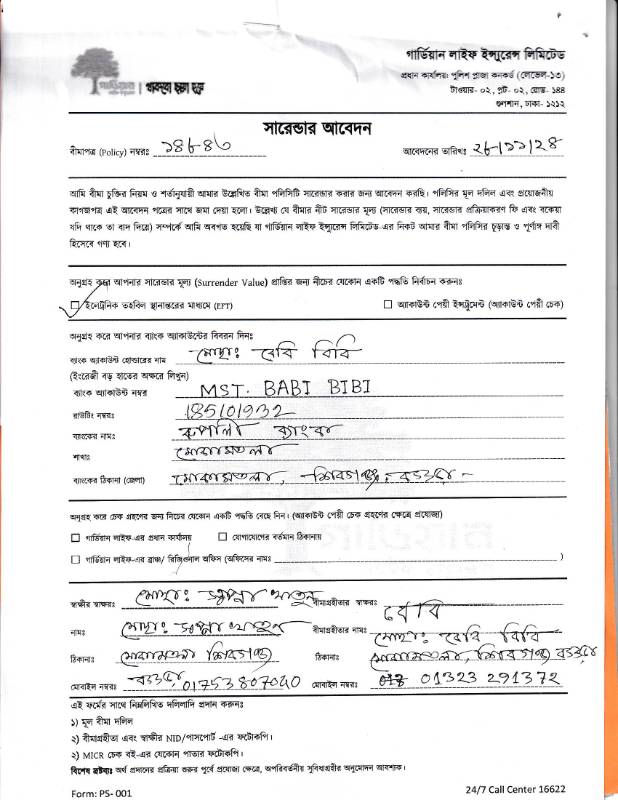 গার্ডিয়ান লাইফ ইন্স্যুরেন্স লিমিটেড
প্রধান কার্যালয়: পুলিশ প্লাজা কনকর্ড (লেভেল-১৩)
টাওয়ার- ০২, প্লট- ০২, রোড- ১৪৪
গুলশান, ঢাকা- ১২১২
সারেন্ডার আবেদন
বীমাপত্র (Policy) নম্বরঃ
আবেদনের তারিখঃ ২৮/১১/২৪
আমি বীমা চুক্তির নিয়ম ও শর্তানুযায়ী আমার উল্লেখিত বীমা পলিসিটি সারেন্ডার করার জন্য আবেদন করছি। পলিসির মূল দলিল এবং প্রয়োজনীয়
কাগজপত্র এই আবেদন পত্রের সাথে জমা দেয়া হলো। উল্লেখ্য যে বীমার নীট সারেন্ডার মূল্য (সারেন্ডার ব্যয়, সারেন্ডার প্রক্রিয়াকরণ ফি এবং বকেয়া
যদি থাকে তা বাদ দিয়ে) সম্পর্কে আমি অবগত হয়েছি যা গার্ডিয়ান লাইফ ইন্স্যুরেন্স লিমিটেড-এর নিকট আমার বীমা পলিসির চূড়ান্ত ও পূর্ণাঙ্গ দাবী
হিসেবে গণ্য হবে।
অনুগ্রহ করে আপনার সারেন্ডার মূল্য (Surrender Value) প্রাপ্তির জন্য নীচের যেকোন একটি পদ্ধতি নির্বাচন করুনঃ
ইলেট্রনিক তহবিল স্থানান্তরের মাধ্যমে (EFT)
অ্যাকাউন্ট পেয়ী ইন্সট্রুমেন্ট (অ্যাকাউন্ট পেয়ী চেক)
অনুগ্রহ করে আপনার ব্যাংক অ্যাকাউন্টের বিবরন দিনঃ
ব্যাংক অ্যাকাউন্ট হোল্ডারের নাম মোছাঃ বেবি বিবি
(ইংরেজী বড় হাতের অক্ষরে লিখুন)
ব্যাংক অ্যাকাউন্ট নম্বর MST. BABI BIBI
রাউটিং নম্বরঃ 185101932
ব্যাংকের নামঃ রুপালী ব্যাংক
শাখাঃ মোকামতলা
ব্যাংকের ঠিকানা (জেলা) মোকামতলা, শিবগঞ্জ, বগুড়া -
অনুগ্রহ করে চেক গ্রহণের জন্য নিচের যেকোন একটি পদ্ধতি বেছে নিন। (অ্যাকাউন্ট পেয়ী চেক গ্রহণের ক্ষেত্রে প্রযোজ্য)
গার্ডিয়ান লাইফ-এর প্রধান কার্যালয়
যোগাযোগের বর্তমান ঠিকানায়
গার্ডিয়ান লাইফ-এর ব্রাঞ্চ/ রিজিওনাল অফিস (অফিসের নামঃ )
স্বাক্ষীর স্বাক্ষরঃ মোছাঃ স্বপ্না খাতুন বীমাগ্রহীতার স্বাক্ষরঃ বেবি
নামঃ মোছাঃ স্বপ্না খাতুন বীমাগ্রহীতার নামঃ মোছাঃ বেবি বিবি
ঠিকানাঃ মোকামতলা শিবগঞ্জ ঠিকানাঃ মোকামতলা, শিবগঞ্জ বগুড়া
মোবাইল নম্বরঃ বগুড়া, 01753807040 মোবাইল নম্বরঃ 01323 291372
এই ফর্মের সাথে নিম্নলিখিত দলিলাদি প্রদান করুনঃ
১) মূল বীমা দলিল
২) বীমাগ্রহীতা এবং স্বাক্ষীর NID/পাসপোর্ট -এর ফটোকপি।
২) MICR চেক বই-এর যেকোন পাতার ফটোকপি।
বিশেষ দ্রষ্টব্যঃ অর্থ প্রদানের প্রক্রিয়া শুরুর পূর্বে প্রযোজ্য ক্ষেত্রে, অপরিবর্তনীয় সুবিধাগ্রহীর অনুমোদন আবশ্যক।
Form: PS- 001
24/7 Call Center 16622